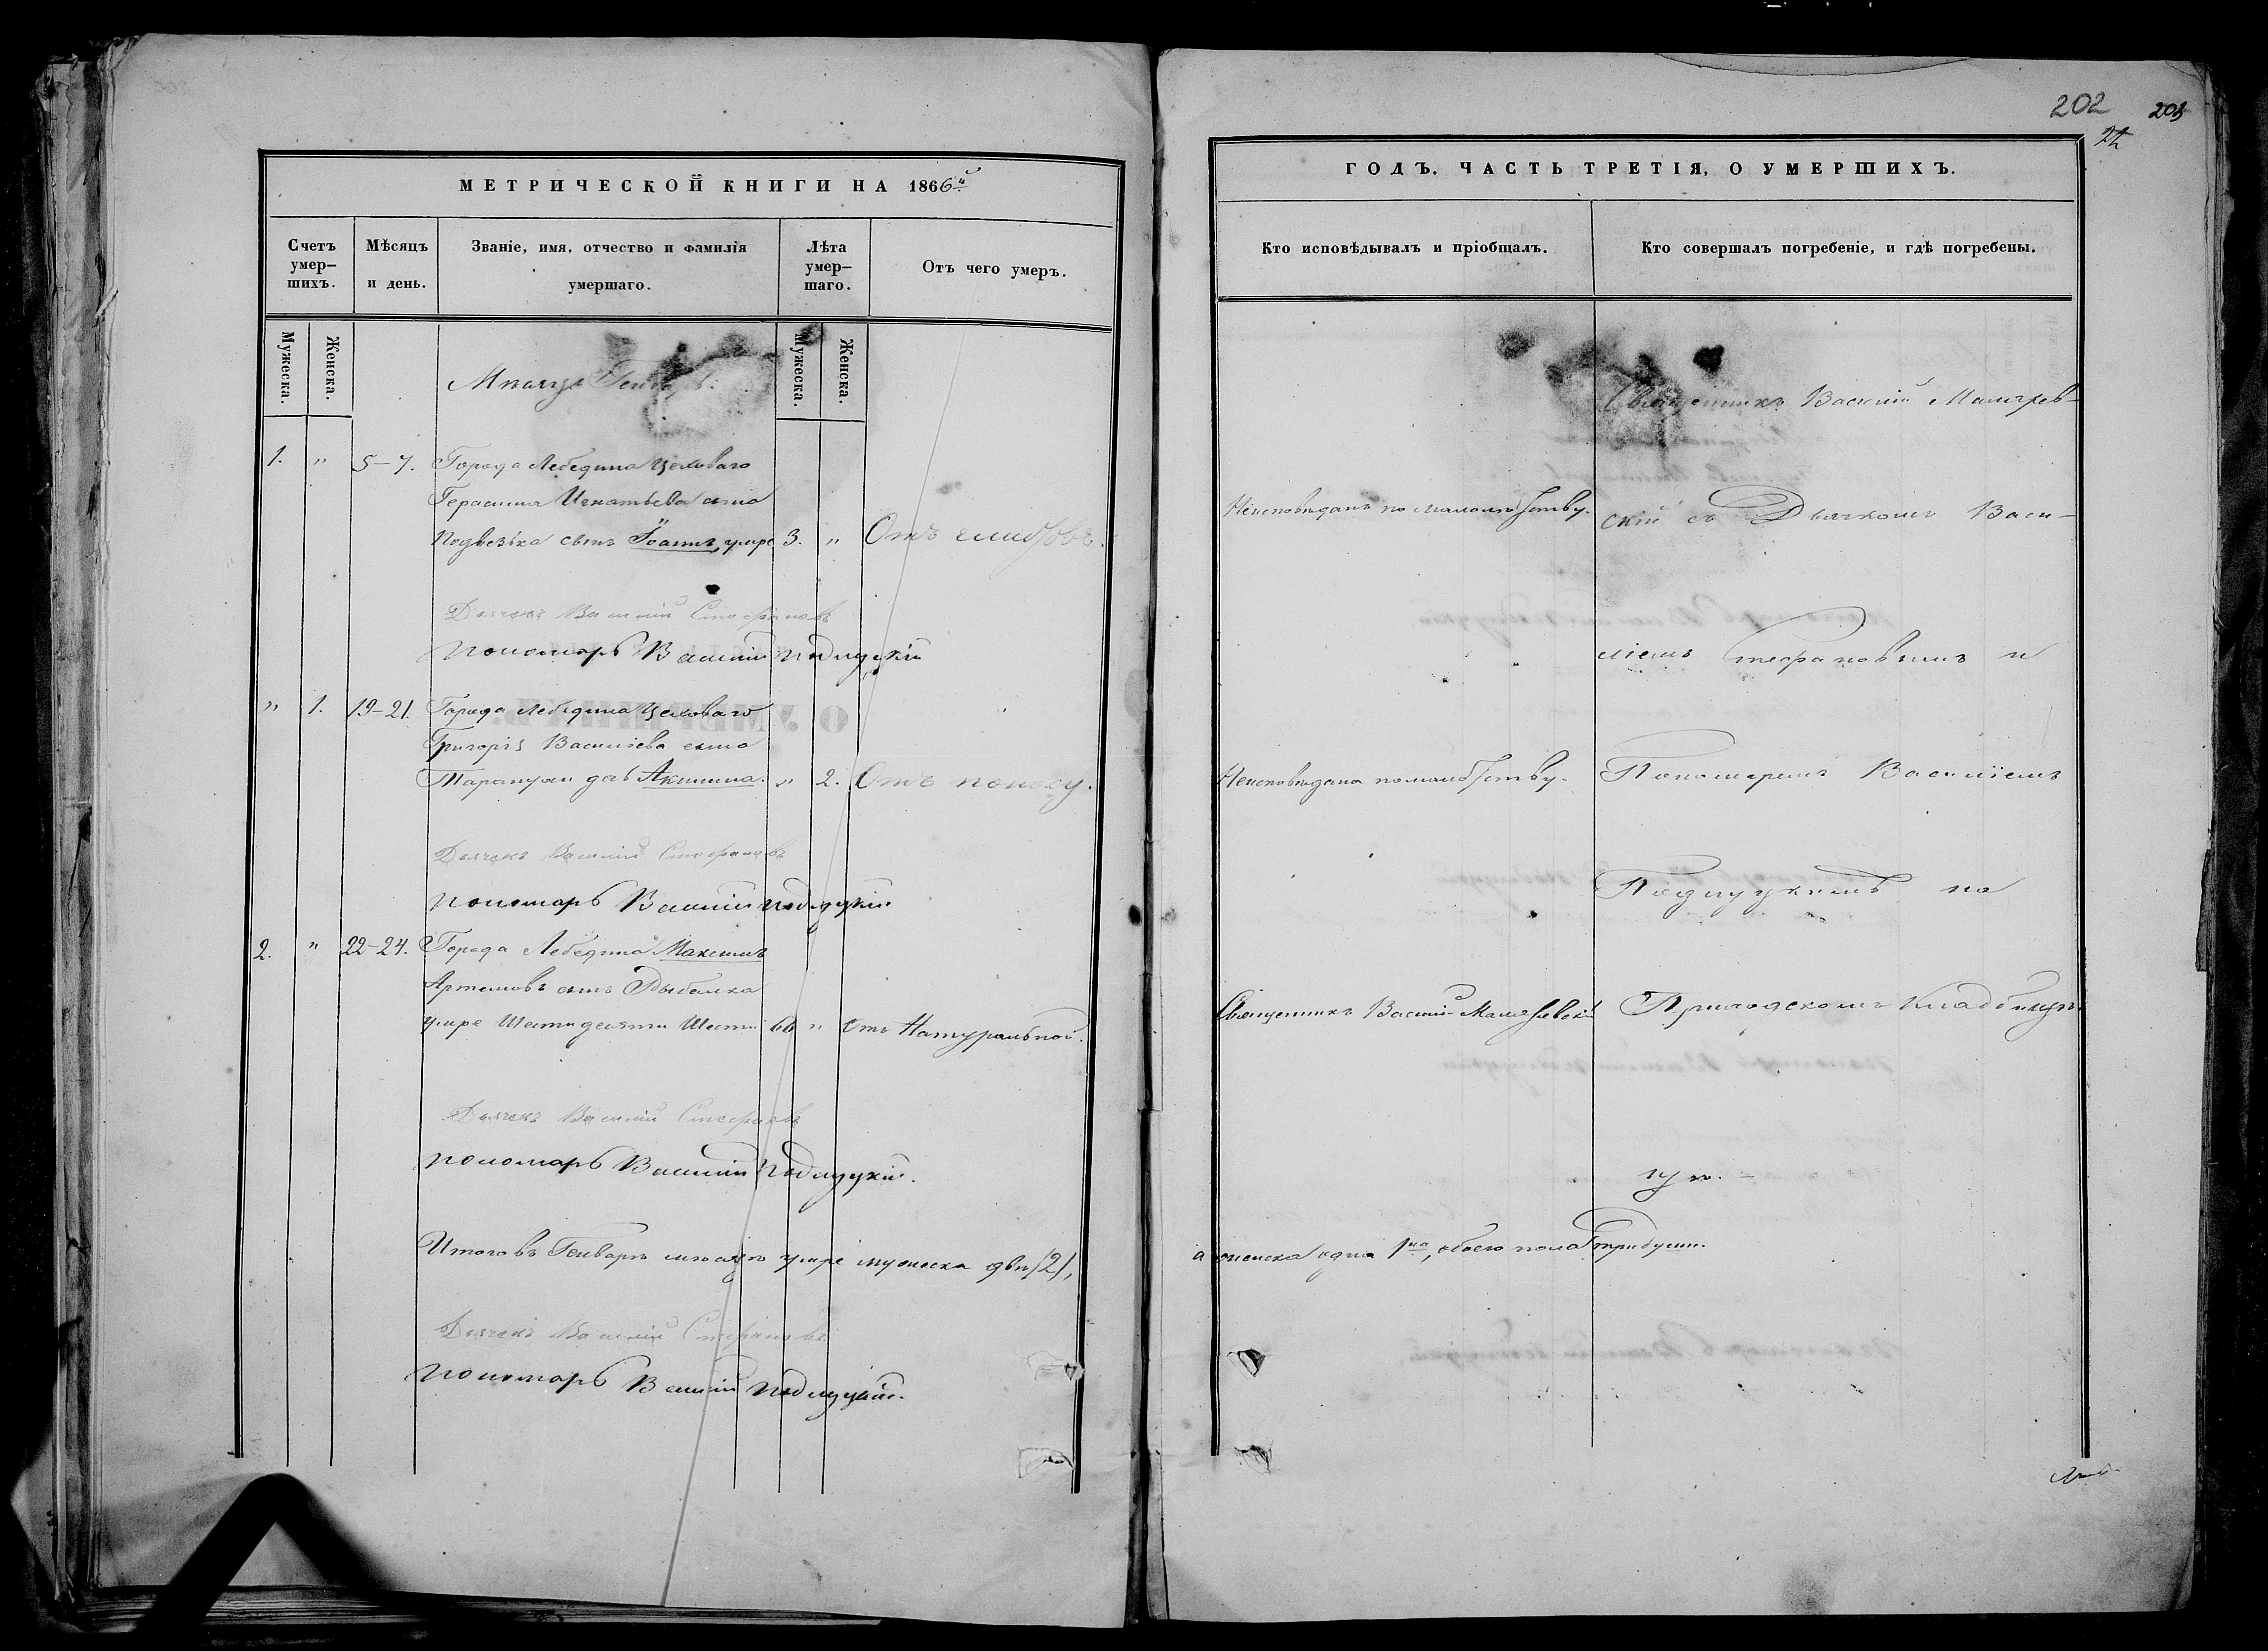 202 203
22
МЕТРИЧЕСКОЙ КНИГИ НА 1866й
Счетъ умер-шихъ.
Мѣсяцъ и день.
Званіе, имя, отчество и фамилія умершаго.
Лѣта умер-шаго.
Отъ чего умеръ.
Мужеска.
Женска.
Мужеска.
Женска.
Мѣсяцъ Генварь:
1. " 5-7. Города Лебедина цеховаго
Герасима Игнатьева сына
сынъ Іоаннъ, умре 3. " Отъ
Дьячекъ Василій Стефановъ
Пономарь Василій Подлуцкій
" 1. 19-21. Города Лебедина цеховаго
Григорія Василіева сына
дочь Акилина. " 2. Отъ поносу.
Дьячекъ Василій Стефановъ
Пономарь Василій Подлуцкій
2. " 22-24. Города Лебедина Максимъ
Артемовъ сынъ Рыбалка
умре Шестидесяти Шести 66 " Отъ Натуральной.
Дьячекъ Василій Стефановъ
Пономарь Василій Подлуцкій.
Итого въ Генварѣ мѣсяцѣ умре мужеска два /2/,
Дьячекъ Василій Стефановъ
Пономарь Василій Подлуцкій.
ГОДЪ, ЧАСТЬ ТРЕТІЯ, О УМЕРШИХЪ.
Кто исповѣдывалъ и пріобщалъ.
Кто совершалъ погребеніе, и гдѣ погребены.
Священникъ Василій
Неисповѣданъ по малолѣтству. скій съ Дьячкомъ Васи-
ліемъ Стефановымъ и
Неисповѣдана по малолѣтству. Пономаремъ Василіемъ
Подлуцкимъ на
Священникъ Василій Приходскомъ
а женска одна 1на, обоего пола три души.